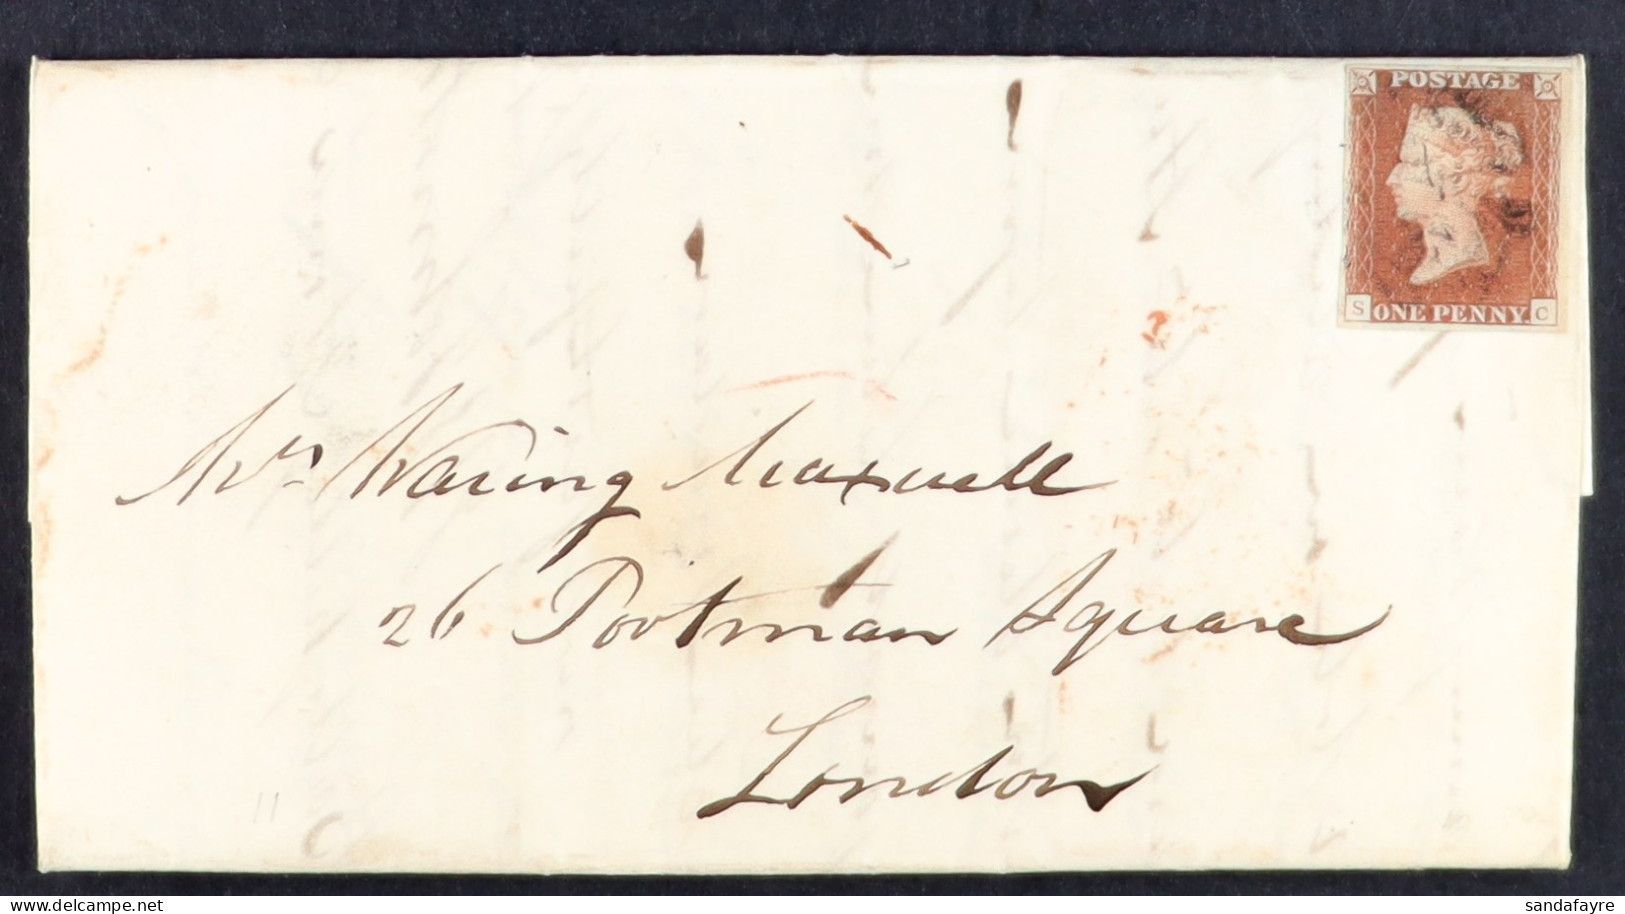 POSTAGE
S ONE PENNY. C
Mrs Waring Maxwell
26 Portman Square
London
11
delcampe.net
sandafayre